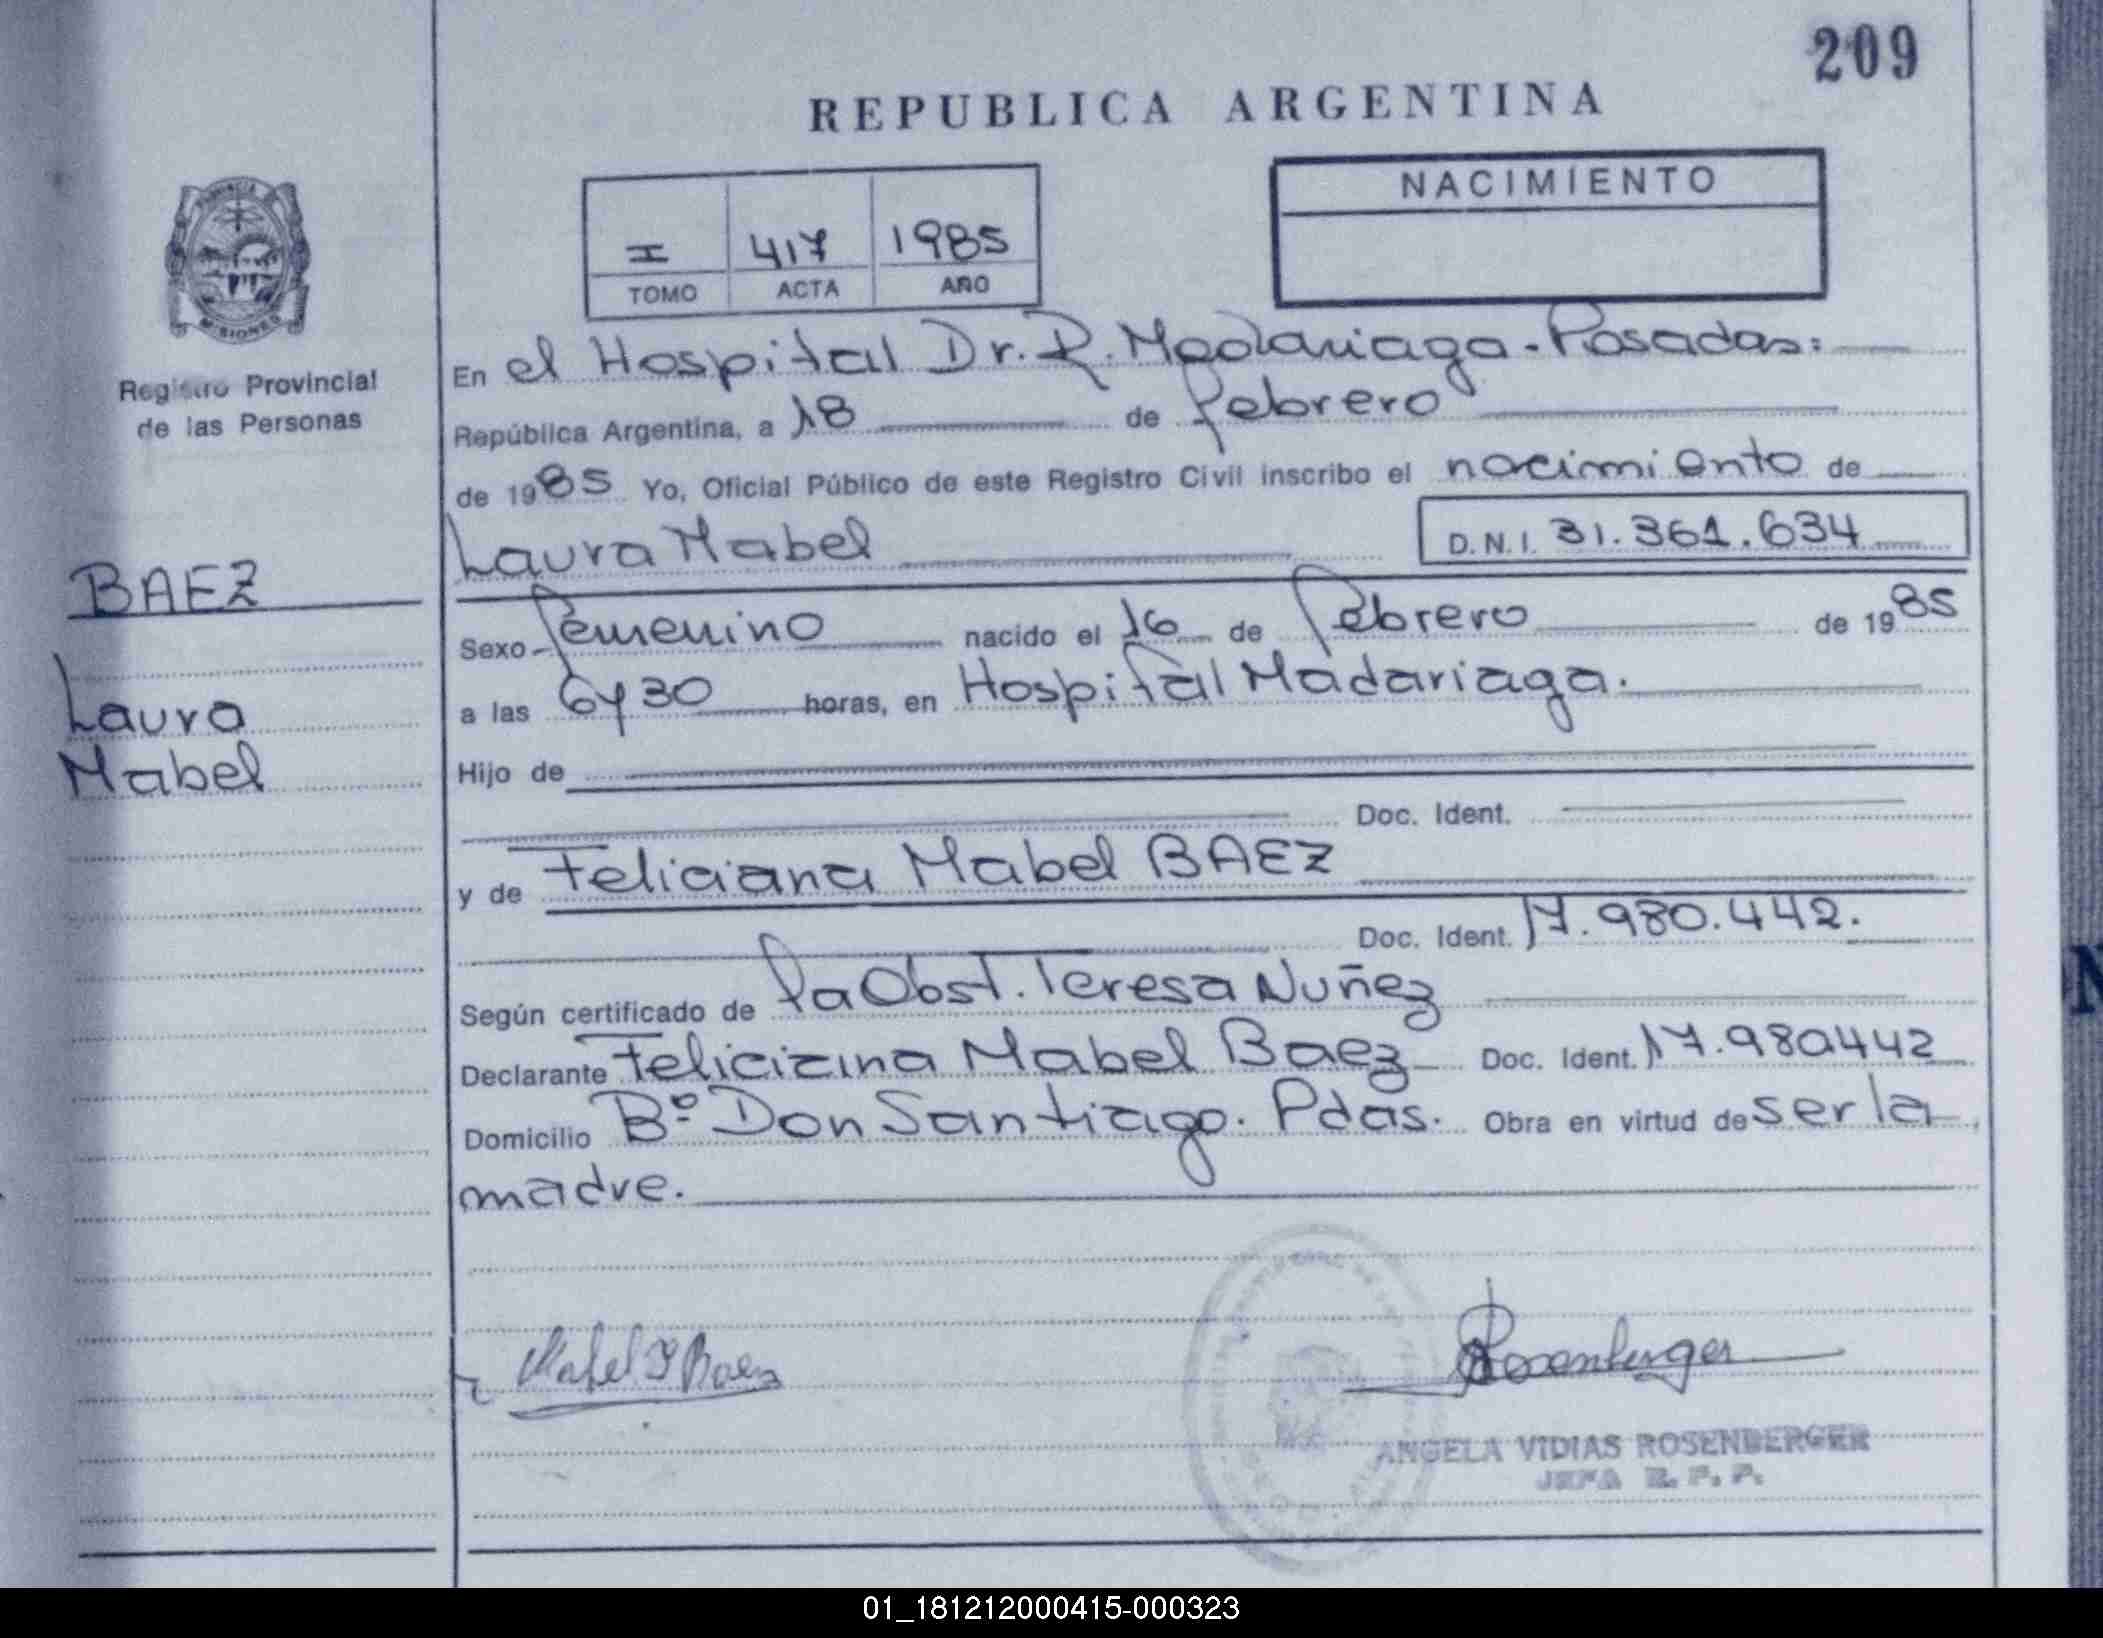 209
REPUBLICA ARGENTINA
NACIMIENTO
I 417 1985
TOMO ACTA AÑO
PROVINCIA
MISIONES
Registro Provincial
de las Personas
En el Hospital Dr. R. Madariaga - Posadas:
República Argentina, a 18 de febrero
de 1985 Yo, Oficial Público de este Registro Civil inscribo el nacimiento de
Laura Mabel D.N.I. 31.361.634
BAEZ
Laura
Mabel
Sexo femenino nacido el 16 de febrero de 1985
a las 6 y 30 horas, en Hospital Madariaga.
Hijo de
Doc. Ident.
y de Feliciana Mabel BAEZ
Doc. Ident. 17.980.442.
Según certificado de la Obst. Teresa Nuñez
Declarante Feliciana Mabel Baez Doc. Ident. 17.980442
Domicilio Bº Don Santiago. Pdas. Obra en virtud de ser la
madre.
Mabel F Baez
Rosenberger
ANGELA VIDIAS ROSENBERGER
JEFA R. P. P.
N
01_181212000415-000323